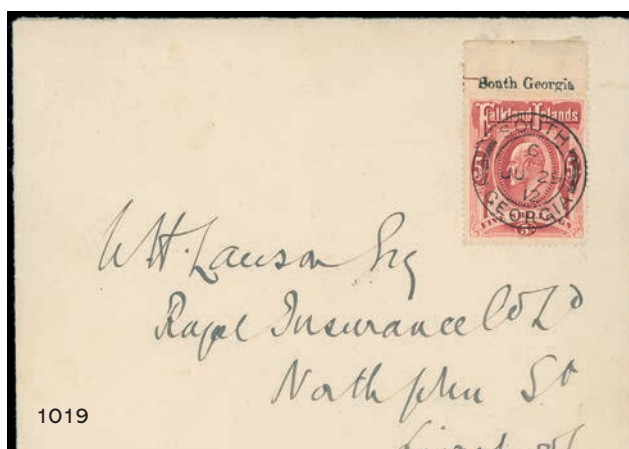 South Georgia
Falkland Islands
SOUTH
GEORGIA
W H. Lawson Esq
Royal Insurance Co Ld
North John St
1019